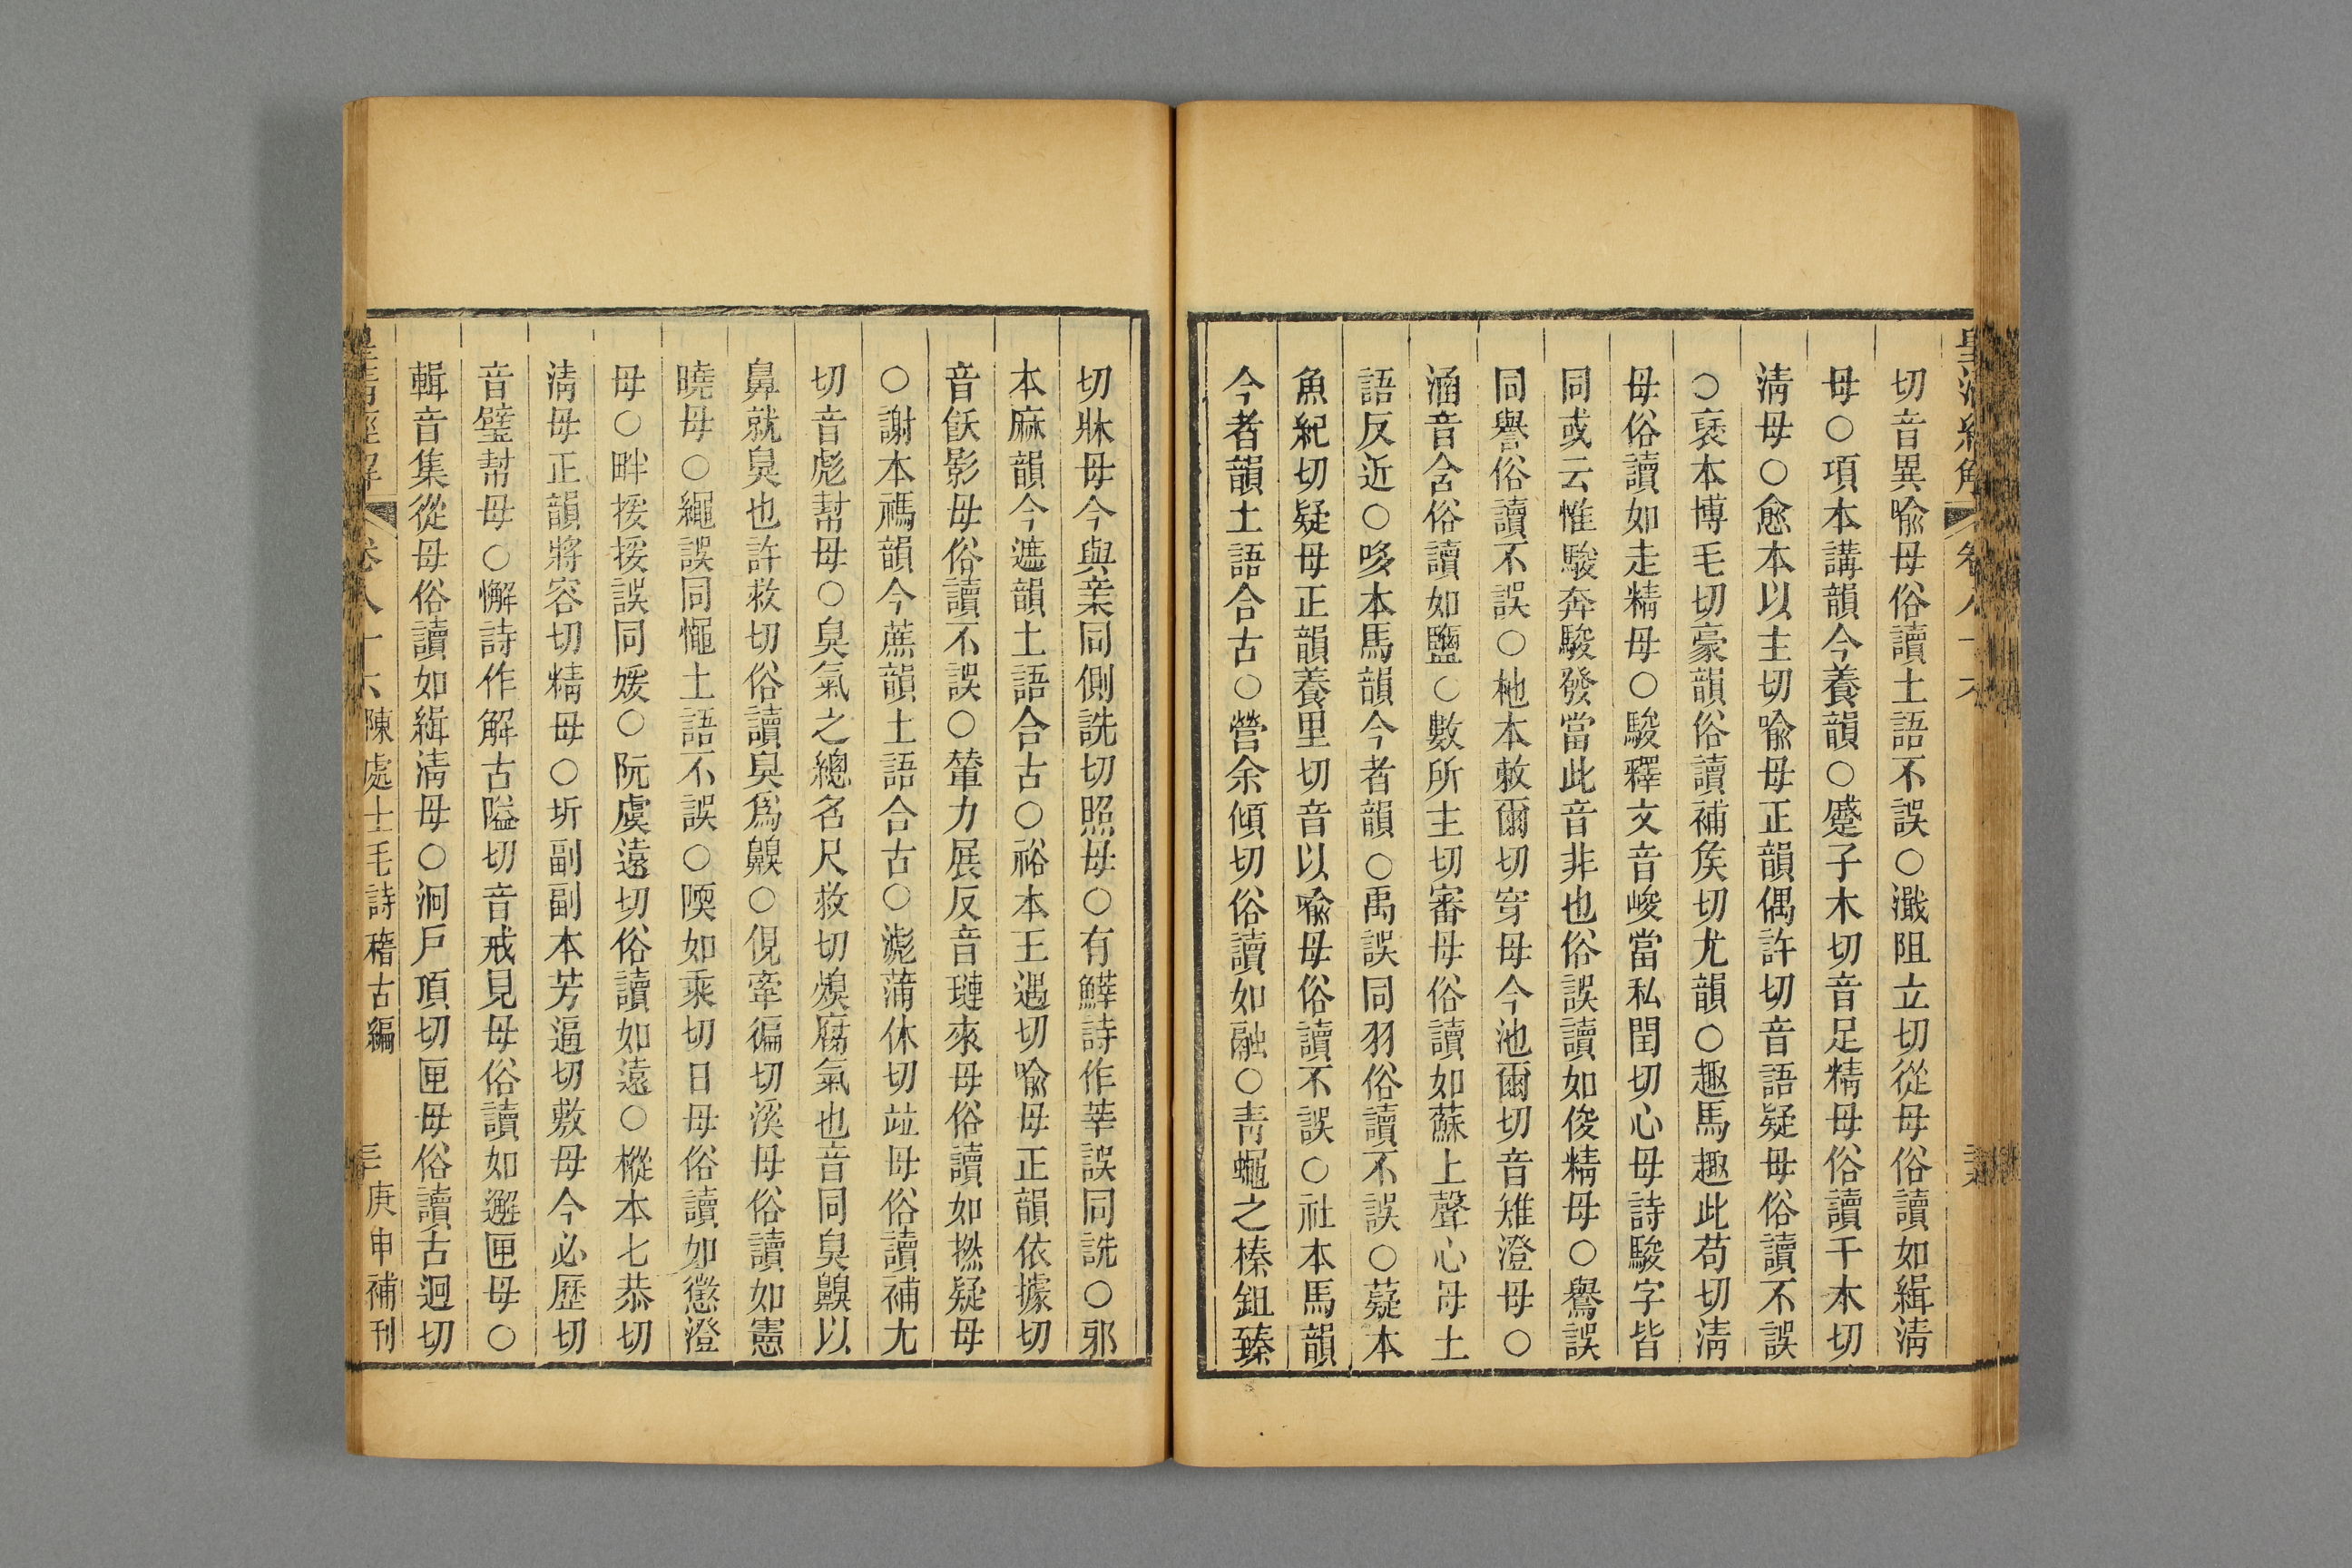 切音異喻母俗讀土語不誤○濈阻立切從母俗讀如緝清
母○項本講韻今養韻○蹙子木切音足精母俗讀千木切
清母○愈本以主切喻母正韻偶許切音語疑母俗讀不誤
○裦本博毛切豪韻俗讀補矦切尤韻○趣馬趣此苟切清
母俗讀如走精母○駿釋文音峻當私閏切心母詩駿字皆
同或云惟駿奔駿發當此音非也俗誤讀如俊精母○鸒誤
同譽俗讀不誤○杝本敕爾切穿母今池爾切音雉澄母○
涵音含俗讀如鹽○數所主切審母俗讀如蘇上聲心母土
語反近○哆本馬韻今者韻○禹誤同羽俗讀不誤○薿本
魚紀切疑母正韻養里切音以喻母俗讀不誤○社本馬韻
今者韻土語合古○營余傾切俗讀如融○青蠅之榛鉏臻
切牀母今與業同側詵切照母○有鮮詩作莘誤同詵○邪
本麻韻今遮韻土語合古○裕本王遇切喻母正韻依據切
音飫影母俗讀不誤○輦力展反音璉來母俗讀如撚疑母
○謝本禡韻今蔗韻土語合古○滮蒲休切竝母俗讀補尤
切音彪幫母○臭氣之總名尺救切煐腐氣也音同臭齅以
鼻就臭也許救切俗讀臭爲齅○俔牽徧切溪母俗讀如憲
曉母○繩誤同憴土語不誤○陾如乘切日母俗讀如懲澄
母○畔援援誤同媛○阮虞遠切俗讀如遠○樅本七恭切
清母正韻將容切精母○坼副副本芳逼切敷母今必歷切
音璧幫母○懈詩作解古隘切音戒見母俗讀如邂匣母○
輯音集從母俗讀如緝清母○泂戶頂切匣母俗讀古迥切
皇清經解 卷八十六 陳處士毛詩稽古編 庚申補刊